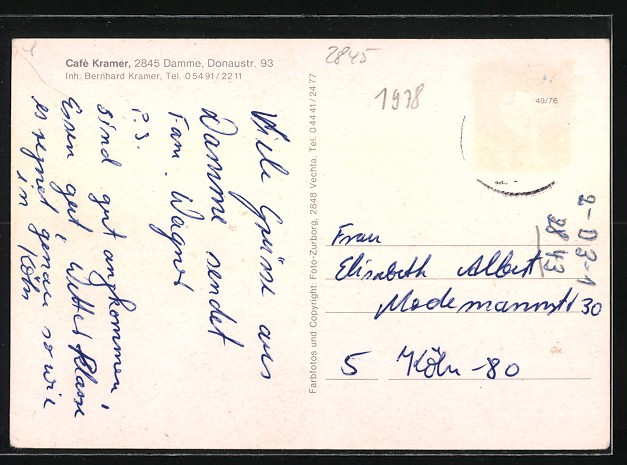 Cafè Kramer, 2845 Damme, Donaustr. 93
Inh. Bernhard Kramer, Tel. 0 54 91 / 22 11
Viele Grüsse aus
Damme sendet
Fam. Wagner
P.S.
sind gut angekommen,
Essen gut, Wetter klasse
es regnet genau so wie
in Köln
Farbfotos und Copyright: Foto-Zurborg, 2848 Vechta, Tel. 0 44 41 / 24 77
2845
1978
49/76
Frau
Elisabeth Albert
30
5 Köln-80
2-D3-1
2843